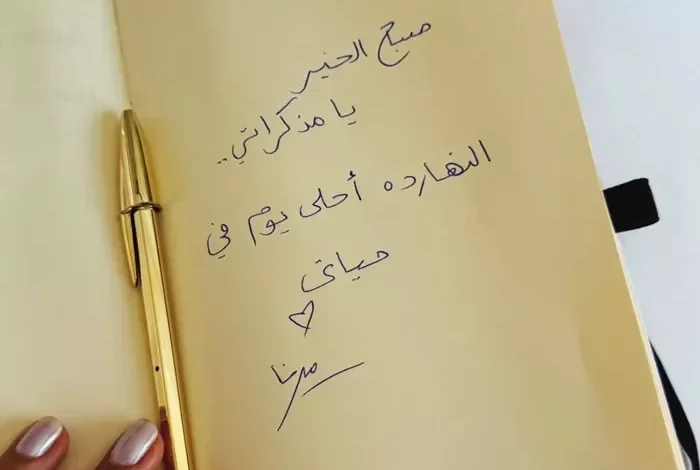 صباح الخير
يا مذكراتي..
النهارده أحلى يوم في
حياتى
ميرنا